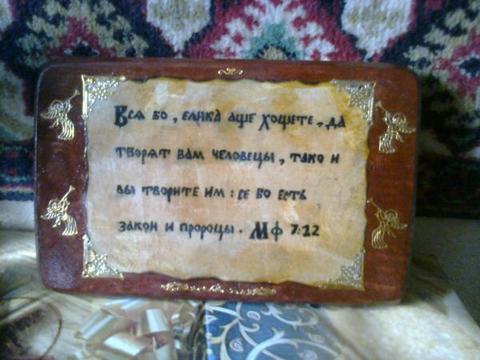 Вся бо, елика аще хощете, да
творят вам человецы, тако и
вы творите им: се бо есть
закон и пророцы. Мф 7:12